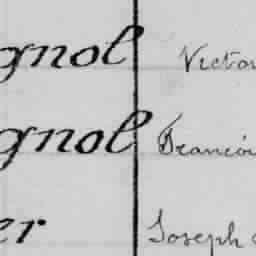 gnol Victor
gnol Francois
er Joseph